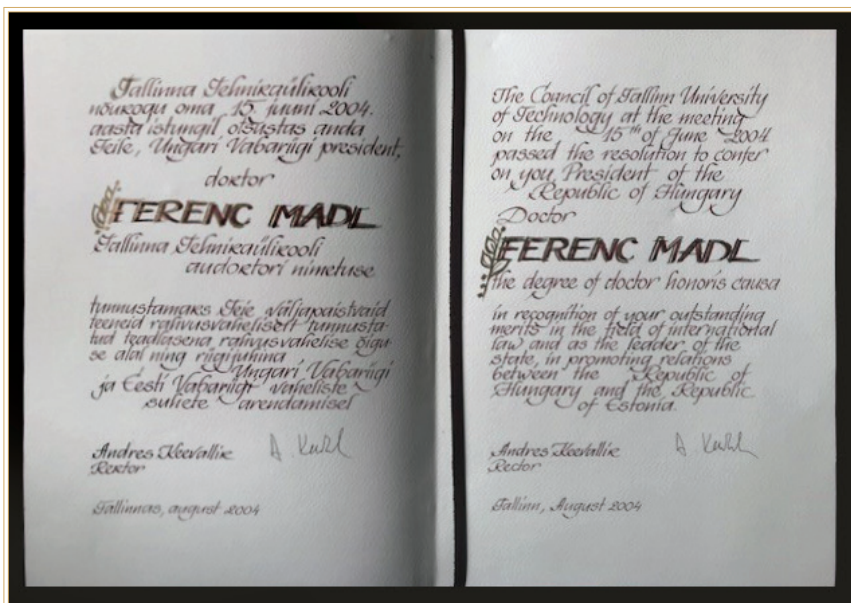 Tallinna Tehnikaülikooli
nõukogu oma 15. juuni 2004.
aasta istungil otsustas anda
Teile, Ungari Vabariigi president,
doktor
FERENC MADL
Tallinna Tehnikaülikooli
audoktori nimetuse
tunnustamaks Teie väljapaistvaid
teeneid rahvusvaheliselt tunnusta-
tud teadlasena rahvusvahelise õigu-
se alal ning riigijuhina
Ungari Vabariigi
ja Eesti Vabariigi vaheliste
suhete arendamisel
Andres Keevallik
Rektor
Tallinnas, august 2004
The Council of Tallinn University
of Technology at the meeting
on the 15th of June 2004
passed the resolution to confer
on you, President of the
Republic of Hungary
Doctor
FERENC MADL
the degree of doctor honoris causa
in recognition of your outstanding
merits in the field of international
law and as the leader of the
state, in promoting relations
between the Republic of
Hungary and the Republic
of Estonia.
Andres Keevallik
Rector
Tallinn, August 2004